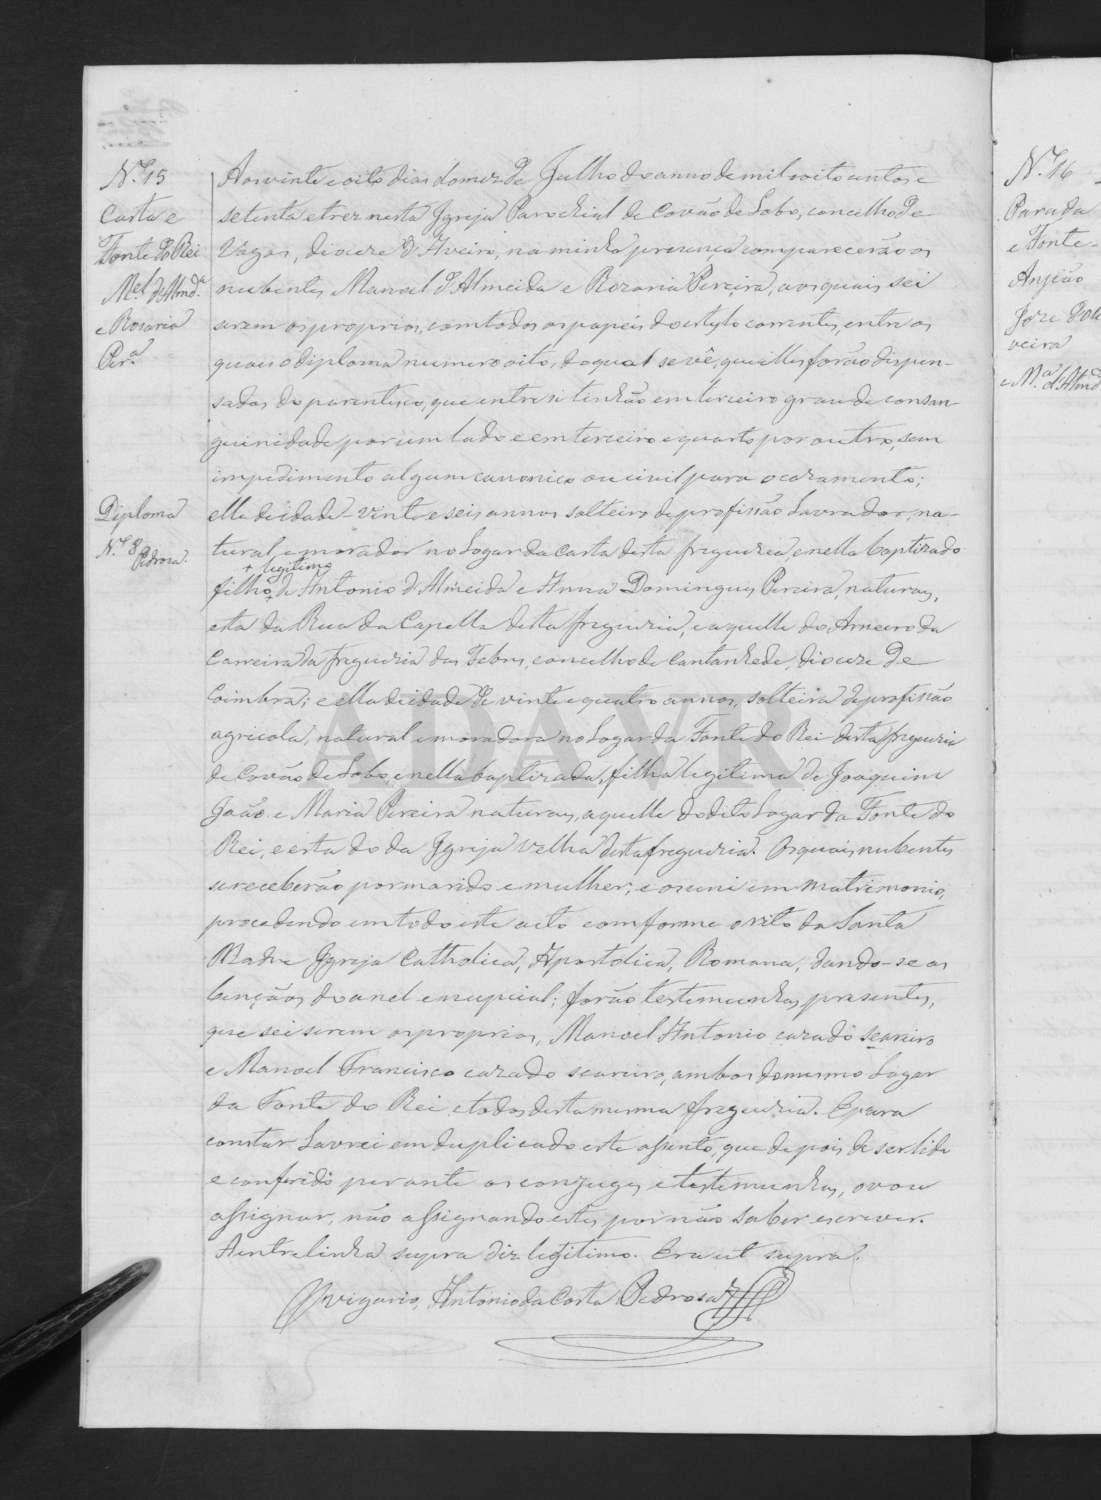 N.º 15
Costa e
Fonte do Rei
M.el d'Almd.ª
e Rosaria
Per.ª
Aos vinte e oito dias do mez de Julho do anno de mil oito centos e
setenta e trez nesta Igreja Parochial de Covão de Lobo, concelho de
Vagos, diocese d'Aveiro, na minha presença comparecerão os
nubentes Manoel d'Almeida e Rozaria Pereira, aos quais sei
serem os proprios, com todos os papeis do estylo correntes, entre os
quaes o diploma numero oito, do qual se vê, que elles forão dispen-
sados do parentesco, que entre si tinhão em terceiro grau de consan-
guinidade por um lado e em terceiro e quarto por outro, sem
impedimento algum canonico ou civil para o casamento;
Diploma
N.º 8
Pedrosa.
elle de idade - vinte e seis annos solteiro de profissão Lavrador, na-
tural e morador no Logar da Costa desta freguezia, e nella baptizado
+ legitimo
filho + de Antonio d'Almeida e Anna Domingues Pereira, naturaes,
esta da Rua da Capella desta freguezia, e aquelle do Arneiro da
Carreira da freguezia das Febres, concelho de Cantanhede, diocese de
Coimbra; e ella de idade de vinte e quatro annos, solteira de profissão
agricola, natural e moradora no Logar da Fonte do Rei desta freguezia
de Covão de Lobo, e nella baptizada, filha legitima de Joaquim
João e Maria Pereira naturaes, aquelle do dito Logar da Fonte do
Rei, e esta do da Igreja Velha desta freguezia. Os quais nubentes
se receberão por marido e mulher; e os uni em Matrimonio,
procedendo em todo este acto comforme o rito da Santa
Madre Igreja Catholica, Apostolica, Romana, dando-se as
bençãos do anel e nupcial; forão testemunhas presentes,
que sei serem os proprios, Manoel Antonio cazado seareiro
e Manoel Francisco cazado seareiro, ambos do mesmo Logar
da Fonte do Rei, e todos desta mesma freguezia. E para
constar Lavrei em duplicado este assento, que de pois de ser lido
e conferido perante os conjuges e testemunhas, o vou
assignar, não assignando estes por não saber escrever.
A entrelinha supra diz legitimo. Era ut supra.
O vigario, Antonio da Costa Pedrosa
ADAVR
N.º 16
Parada
e Fonte-
Angeão
Joze d'Oli
veira
e M.ª d'Almd